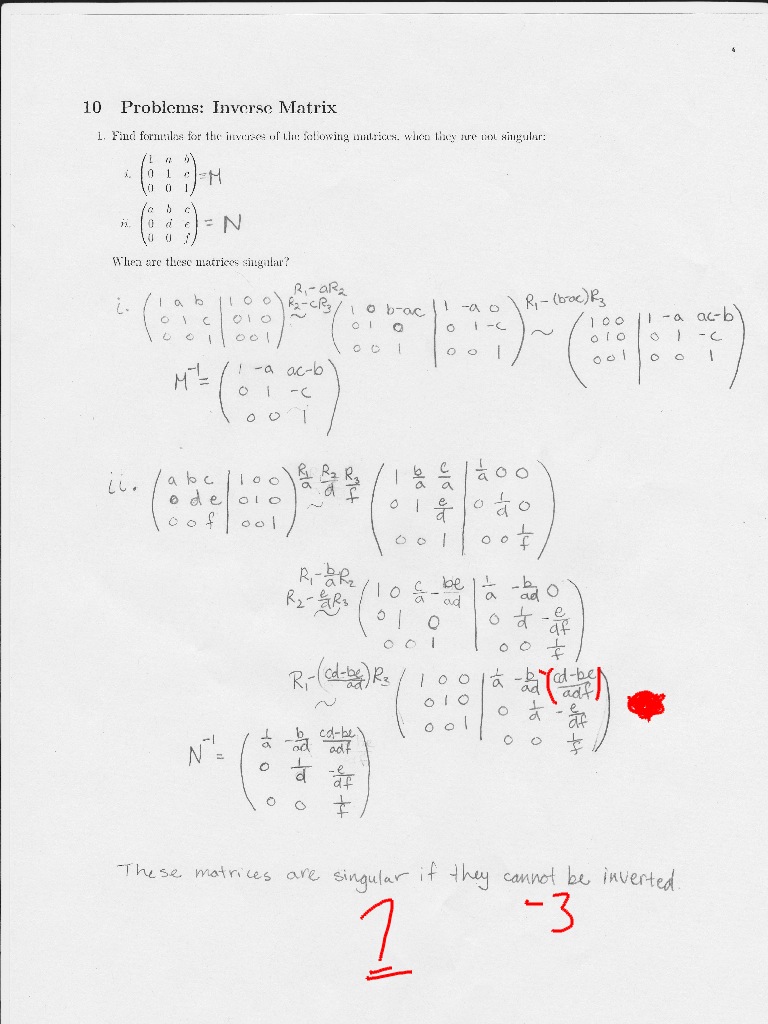 4
10 Problems: Inverse Matrix
1. Find formulas for the inverses of the following matrices, when they are not singular:
i. (1 a b
0 1 c
0 0 1) = M
ii. (a b c
0 d e
0 0 f) = N
When are these matrices singular?
i. (1 a b | 1 0 0
0 1 c | 0 1 0
0 0 1 | 0 0 1)
R₁-aR₂
R₂-cR₃
~
(1 0 b-ac | 1 -a 0
0 1 0 | 0 1 -c
0 0 1 | 0 0 1)
R₁-(b-ac)R₃
~
(1 0 0 | 1 -a ac-b
0 1 0 | 0 1 -c
0 0 1 | 0 0 1)
M⁻¹= (1 -a ac-b
0 1 -c
0 0 1)
ii. (a b c | 1 0 0
0 d e | 0 1 0
0 0 f | 0 0 1)
R₁/a R₂/d R₃/f
~
(1 b/a c/a | 1/a 0 0
0 1 e/d | 0 1/d 0
0 0 1 | 0 0 1/f)
R₁-b/a R₂
R₂-e/d R₃
~
(1 0 c/a - be/ad | 1/a -b/ad 0
0 1 0 | 0 1/d -e/df
0 0 1 | 0 0 1/f)
R₁-(cd-be/ad)R₃
~
(1 0 0 | 1/a -b/ad -(cd-be/adf)
0 1 0 | 0 1/d -e/df
0 0 1 | 0 0 1/f)
N⁻¹ = (1/a -b/ad cd-be/adf
0 1/d -e/df
0 0 1/f)
These matrices are singular if they cannot be inverted.
-3
7